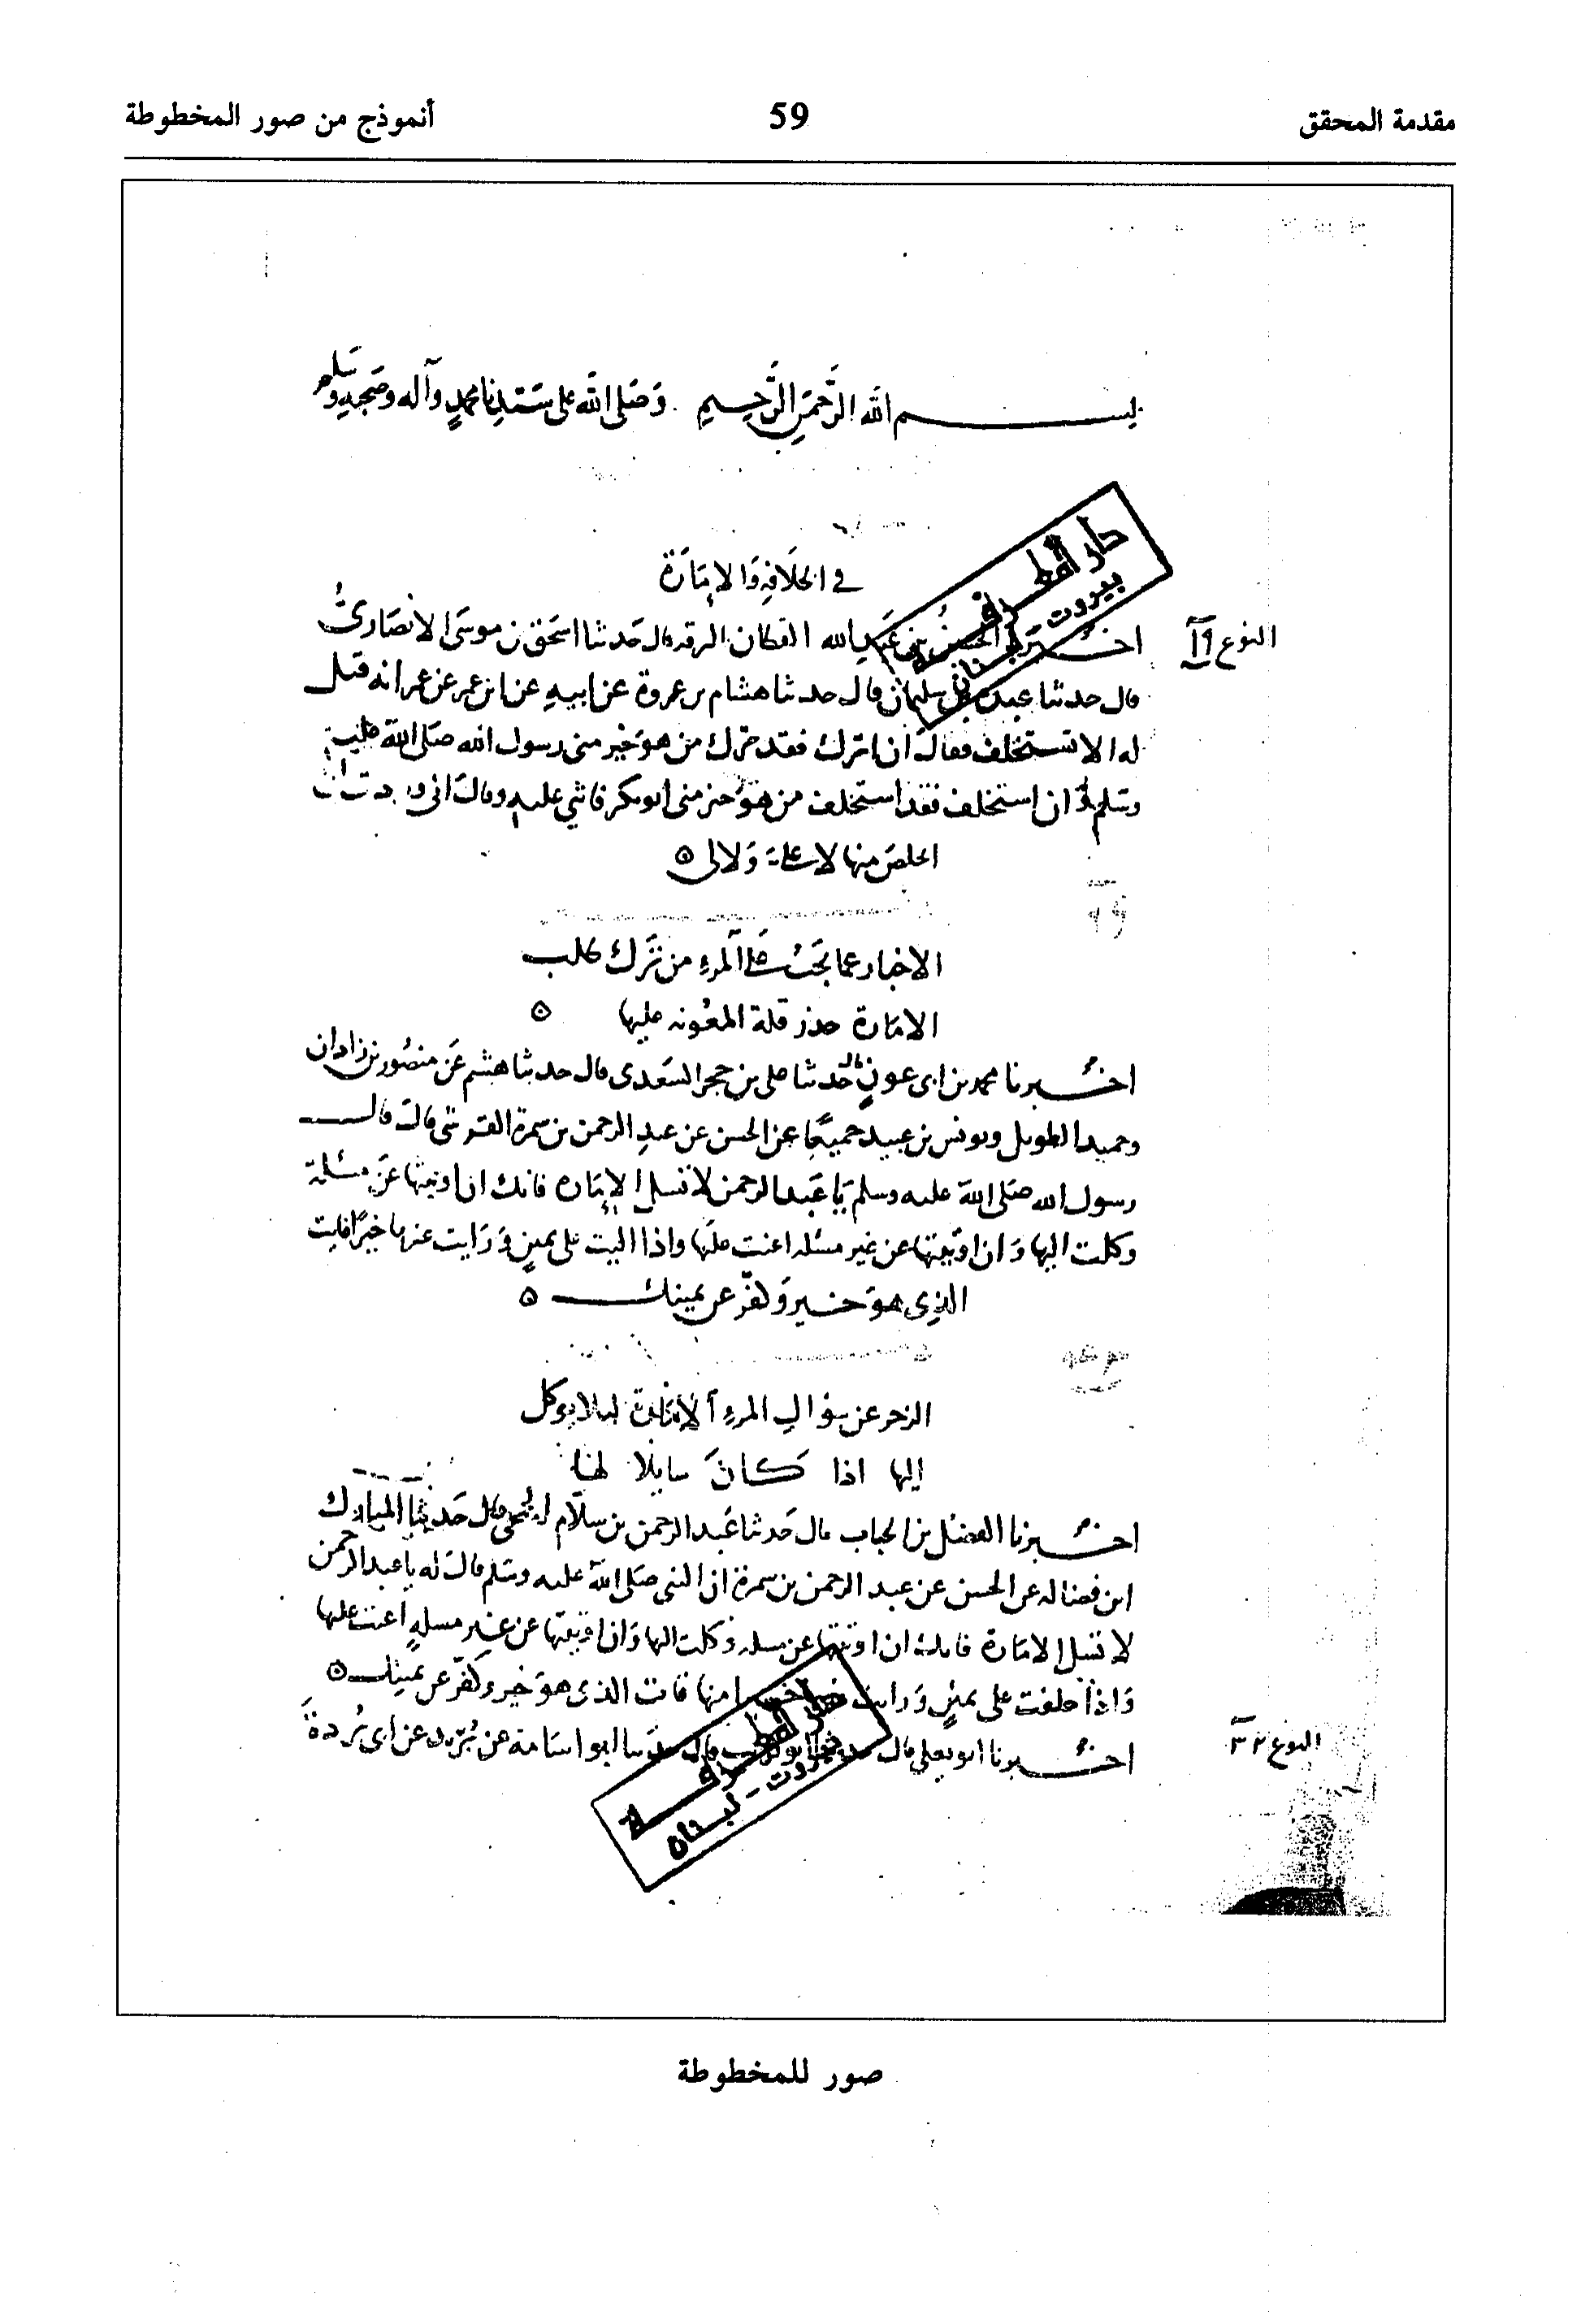 مقدمة المحقق
59
أنموذج من صور المخطوطة
بسم الله الرَّحمَنِ الرَّحِيمِ وَصَلى الله على سَيّدِنا محمدٍ وآله وصَحبِهِ وسَلم
في الخلافه وَالإمَارَة
النوع
اخبرنا الحسنُ بن عَبدِ الله القطان الرقه قال حَدثنا اسحَق بن موسَى الانصَاريُ
قال حدثنا عبدة بن سليمان قال حدثنا هشام بن عروة عن ابيهِ عن ابن عمر عن عمر انه قيل
له الا تستخلف فقالَ ان اترك فقد ترك من هوَ خير مني رسول الله صَلى الله عليه
وسَلم وان استخلف فقد استخلف من هوَ خير مني ابو بكر فاثني عليهِ وقالَ اني وددت ان
اخلصَ منها لا عليَّ وَلا لي ٥
الاخبار عما يجَبُ عَلى المرءِ من تَرك طلب
الامَارة حذر قلة المعُونه عليها ٥
اخبرنا محمد بن ابي عونٍ قال حدثنا علي بن حجر السَعدي قال حدثنا هشيم عَن منصُور بن زاذان
وحميد الطويل ويونس بن عبيد جميعًا عن الحسن عن عبدِ الرحمن بن سمرة القرشي قالَ قال
رسول الله صَلى الله عليه وسلم يَا عَبد الرحمن لا تسل الإمَاره فانك ان اوتيتها عَن مسَئلة
وكلت اليها وَان اوتيتها عن غير مسئله اعنت عليَها واذا اليت على يمينٍ وَرَايت غيرها خيرًا فايت
الذِي هوَ خير وَكفّر عن يمينك ٥
الزجر عن سؤالِ المرءِ الامَارة ليلا يوكل
إليها اذا كَانَ سايلا لهَا
اخبرنا الفضل بن الحباب قال حَدثنا عَبد الرحمن بن سلاّم الجمحي قال حَدثنا المبارك
ابن فضاله عن الحسن عن عبد الرحمن بن سمرة ان النبي صَلى الله عليه وسَلم قالَ له يا عبد الرحمن
لا تسلِ الامَارة فانك ان اوتيتها عن مسله وكلت اليها وَان اوتيتها عن غير مسلهٍ اعنت عليها
وَاذا حلفت على يمينٍ وَرايت غيرها خيرا منها فائت الذي هوَ خير وكفّر عن يمينك ٥
النوع ٣٢
اخبرنا ابو يعلي قال حدثنا ابو كريب قال حدثنا ابو اسَامة عن بُرَيد عن ابي بُردةَ
دار المعرفة
بيروت - لبنان
دار المعرفة
بيروت - لبنان
صور للمخطوطة